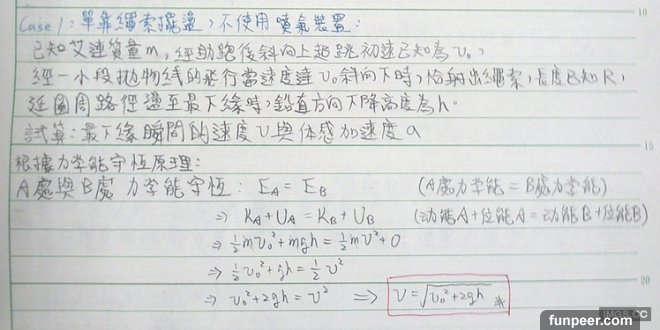 Case 1: 單靠繩索擺盪,不使用噴氣裝置:
已知艾連質量m,經助跑後斜向上起跳初速已知為v₀,
經一小段拋物线的飛行當速度達v₀斜向下時,恰射出繩索,長度已知R,
延圓周路徑盪至最下緣時,鉛直方向下降高度為h。
試算:最下緣瞬間的速度v與体感加速度a
根據力学能守恆原理:
A處與B處力学能守恆: E_A = E_B (A處力学能 = B處力学能)
⇒ K_A + U_A = K_B + U_B (动能A+位能A = 动能B+位能B)
⇒ ½mv₀² + mgh = ½mv² + 0
⇒ ½v₀² + gh = ½v²
⇒ v₀² + 2gh = v² ⇒ v = √(v₀² + 2gh) ※
10
15
20
IMGS.CC
funpeer.com